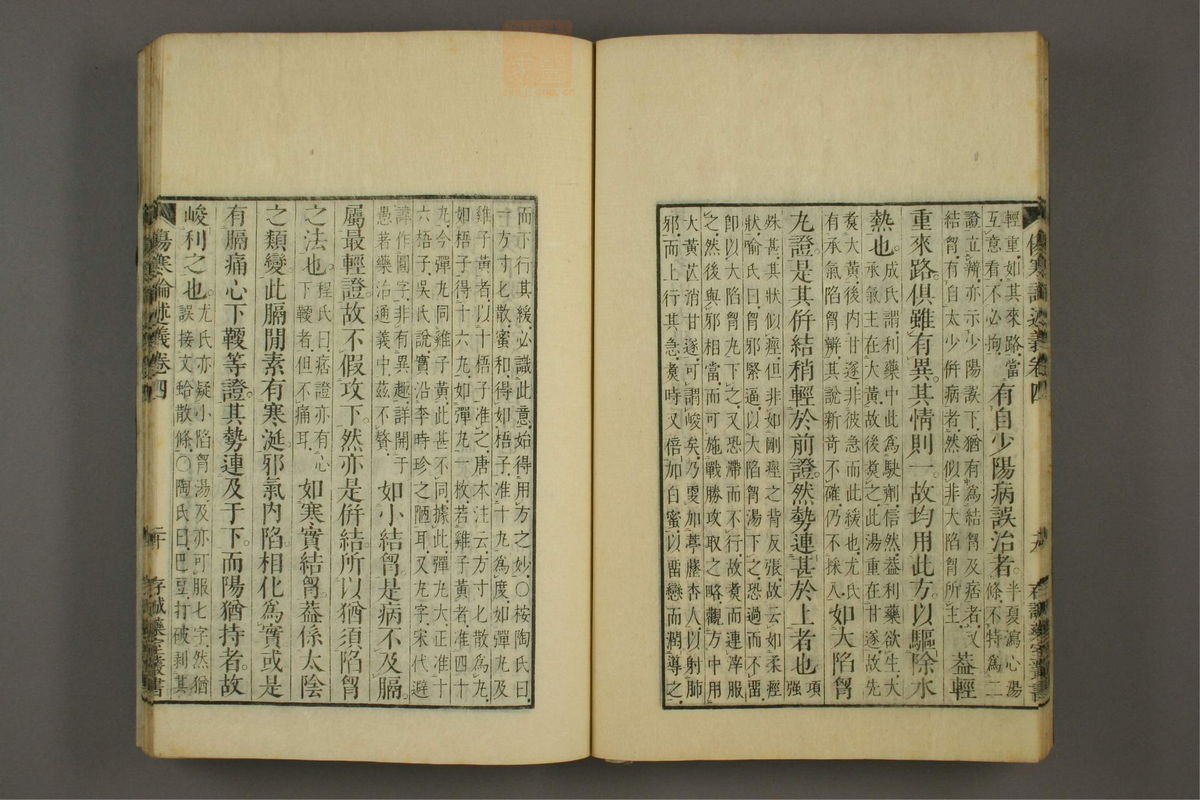 傷寒論述義卷四
九
存誠藥室叢書
輕重如其來路當
互意看不必拘
有自少陽病誤治者
半夏瀉心湯
條不特爲二
證立辨亦示少陽誤下猶有爲結胷及痞者又
結胷有自太少併病者然似非大陷胷所主
葢輕
重來路俱雖有異其情則一故均用此方以驅除水
熱也
成氏謂利藥中此爲駃劑信然葢利藥欲生大
承氣主在大黃故後煑之此湯重在甘遂故先
煑大黃後內甘遂非彼急而此緩也尤氏
有承氣陷胷辨其說新奇不確仍不採入
如大陷胷
丸證是其併結稍輕於前證然勢連甚於上者也
項强
殊甚其狀似痙但非如剛痙之背反張故云如柔痙
狀喻氏曰胷邪緊逼以大陷胷湯下之恐過而不
卽以大陷胷丸下之又恐滯而不行故煑而連滓服
之然後與邪相當而可施戰勝攻取之略觀方中用
大黃芒消甘遂可謂峻矣乃更加葶藶杏人以射肺
邪而上行其急煑時又倍加白蜜以畱戀而潤導之
而下行其緩必識此意始得用方之妙○桉陶氏曰
一方寸匕散蜜和得如梧子准十丸爲度如彈丸及
雞子黃者以十梧子准之唐本注云方寸匕散爲丸
如梧子得十六丸如彈丸一枚若雞子黃者准四十
丸今彈丸同雞子黃此甚不同據此彈丸大正准十
六梧子吳氏說實沿李時珍之陋耳又丸字宋代避
諱作圓字非有異趣詳開于
愚著藥治通義中茲不贅
如小結胷是病不及膈
屬最輕證故不假攻下然亦是併結所以猶須陷胷
之法也
程氏曰痞證亦有心
下鞕者但不痛耳
如寒實結胷葢係太陰
之類變此膈閒素有寒涎邪氣內陷相化爲實或是
有膈痛心下鞕等證其勢連及于下而陽猶持者故
峻利之也
尤氏亦疑小陷胷湯及亦可服七字然猶
誤接文蛤散條○陶氏曰巴豆打破剥其
傷寒論述義卷四
二十
存誠藥室叢書